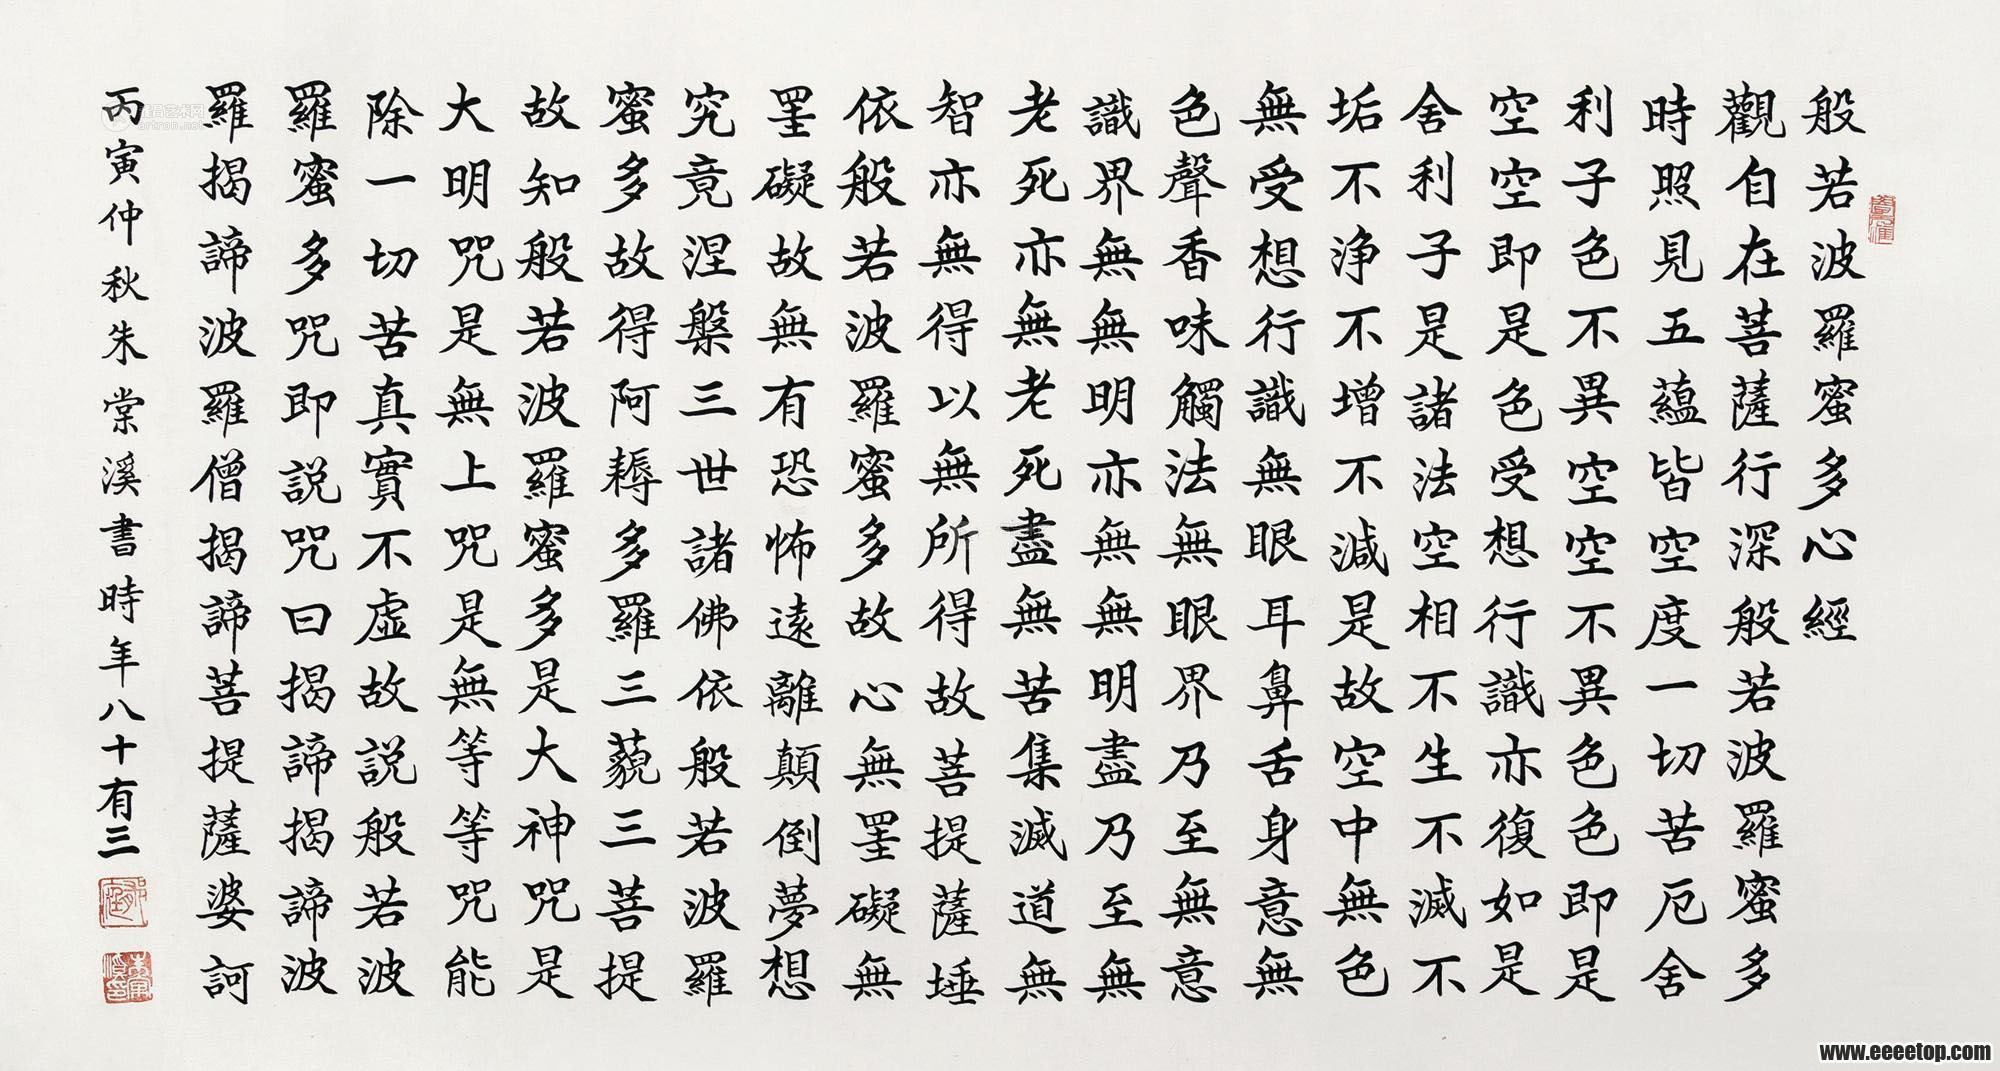 般若波羅蜜多心經
觀自在菩薩行深般若波羅蜜多
時照見五蘊皆空度一切苦厄舍
利子色不異空空不異色色即是
空空即是色受想行識亦復如是
舍利子是諸法空相不生不滅不
垢不淨不增不減是故空中無色
無受想行識無眼耳鼻舌身意無
色聲香味觸法無眼界乃至無意
識界無無明亦無無明盡乃至無
老死亦無老死盡無苦集滅道無
智亦無得以無所得故菩提薩埵
依般若波羅蜜多故心無罣礙無
罣礙故無有恐怖遠離顛倒夢想
究竟涅槃三世諸佛依般若波羅
蜜多故得阿耨多羅三藐三菩提
故知般若波羅蜜多是大神咒是
大明咒是無上咒是無等等咒能
除一切苦真實不虛故說般若波
羅蜜多咒即說咒曰揭諦揭諦波
羅揭諦波羅僧揭諦菩提薩婆訶
丙寅仲秋朱棠溪書時年八十有三
雅昌艺术网
artron.net
www.eeeetop.com